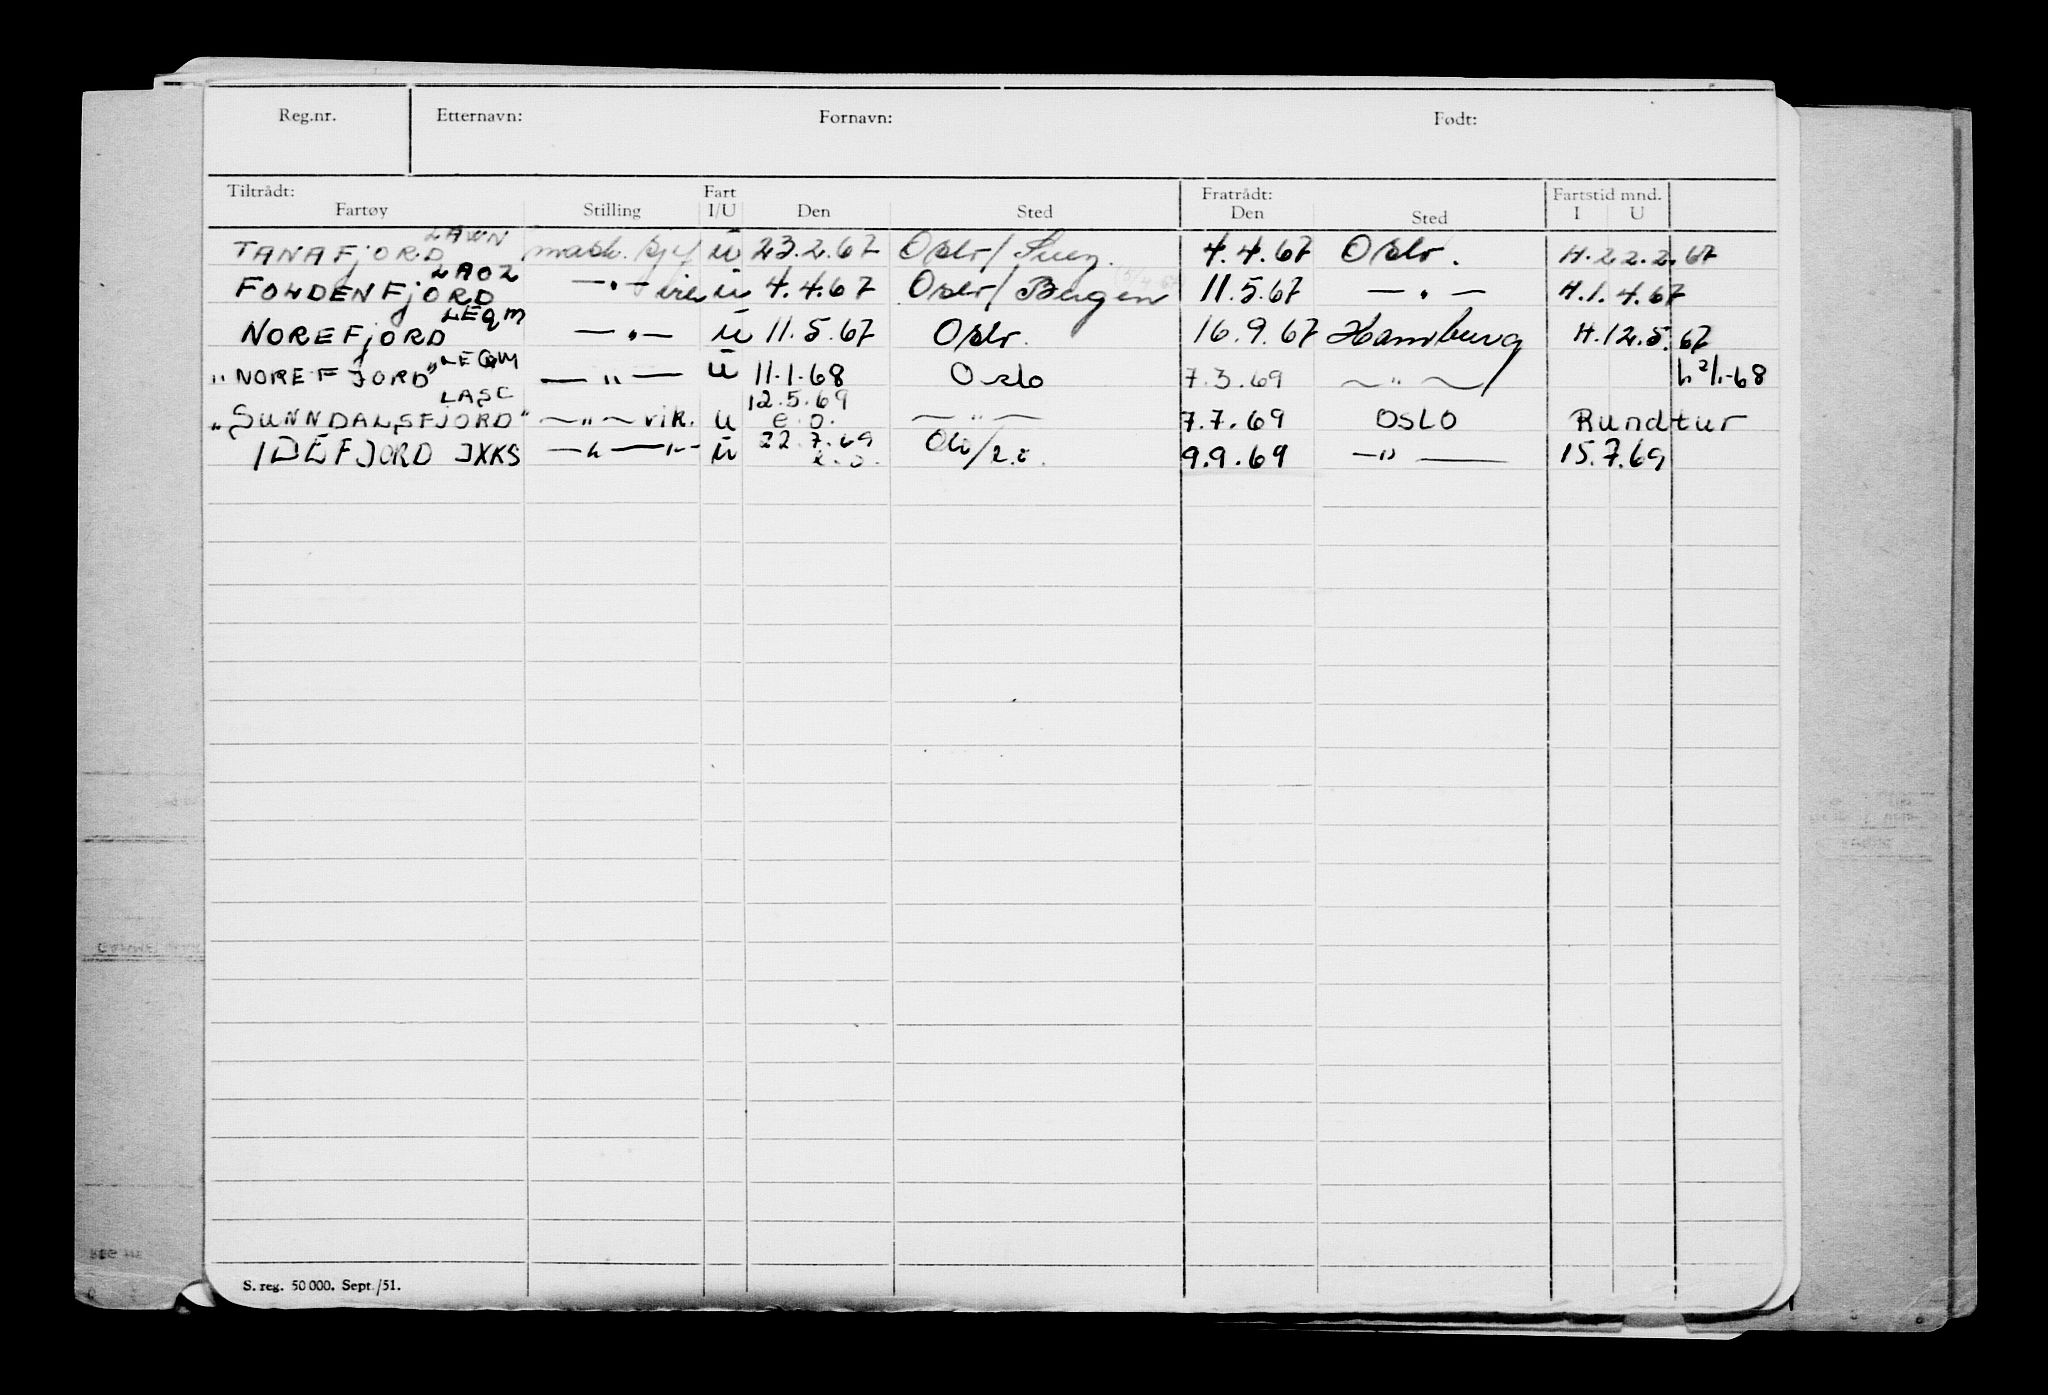 Reg.nr. Etternavn: Fornavn: Født:
Tiltrådt: Fart Fratrådt: Fartstid mnd.
Fartøy Stilling I/U Den Sted Den Sted I U
TANAFJORD LAWN mask. sjef u 23.2.67 Oslo/ 4.4.67 Oslo. H.22.2.67
FOLDENFJORD LAOZ —"— u 4.4.67 Oslo/Bergen 11.5.67 —"— H.1.4.67
NOREFJORD LEQM —"— u 11.5.67 Oslo. 16.9.67 Hamburg H.12.5.67
"NOREFJORD" LEQM —"— u 11.1.68 Oslo 7.3.69 —"— h.2/1-68
"SUNNDALSFJORD" LASC —"— vik. u 12.5.69 e.o. —"— 7.7.69 OSLO Rundtur
IDEFJORD JXKS —"— —"— u 22.7.69 e.o. 9.9.69 —"— 15.7.69
S. reg. 50 000. Sept./51.